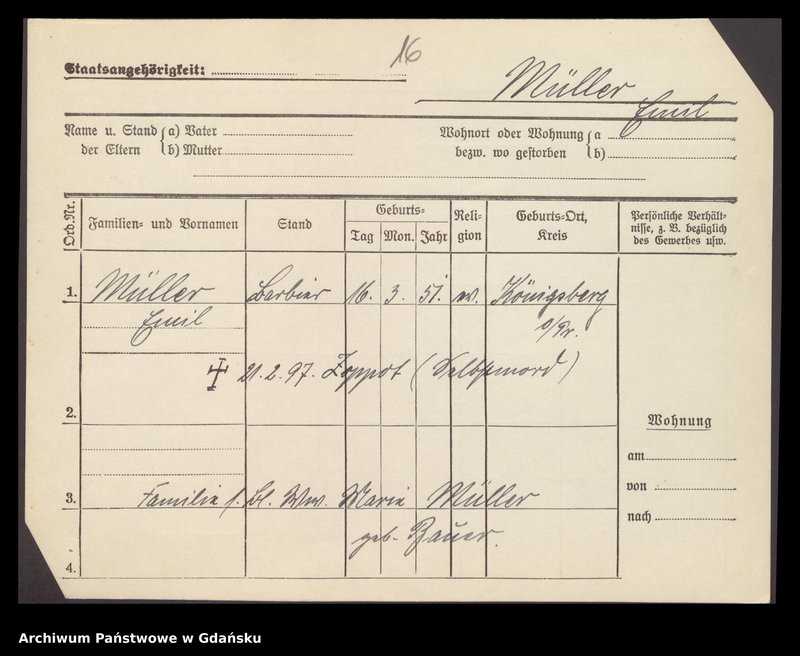 16
Staatsangehörigkeit:
Müller
Emil
Name u. Stand a) Vater
der Eltern b) Mutter
Wohnort oder Wohnung a
bezw. wo gestorben b)
Ord.Nr.
Familien- und Vornamen
Stand
Geburts-
Tag Mon. Jahr
Reli-
gion
Geburts-Ort,
Kreis
Persönliche Verhält-
nisse, z. B. bezüglich
des Gewerbes usw.
1. Müller Barbier 16. 3. 51. ev. Königsberg
Emil o/Pr.
21.2.97. Zoppot (Selbstmord)
2.
Wohnung
am
von
nach
3. Familie s. Bl. Ww. Marie Müller
geb. Bauer.
4.
Archiwum Państwowe w Gdańsku